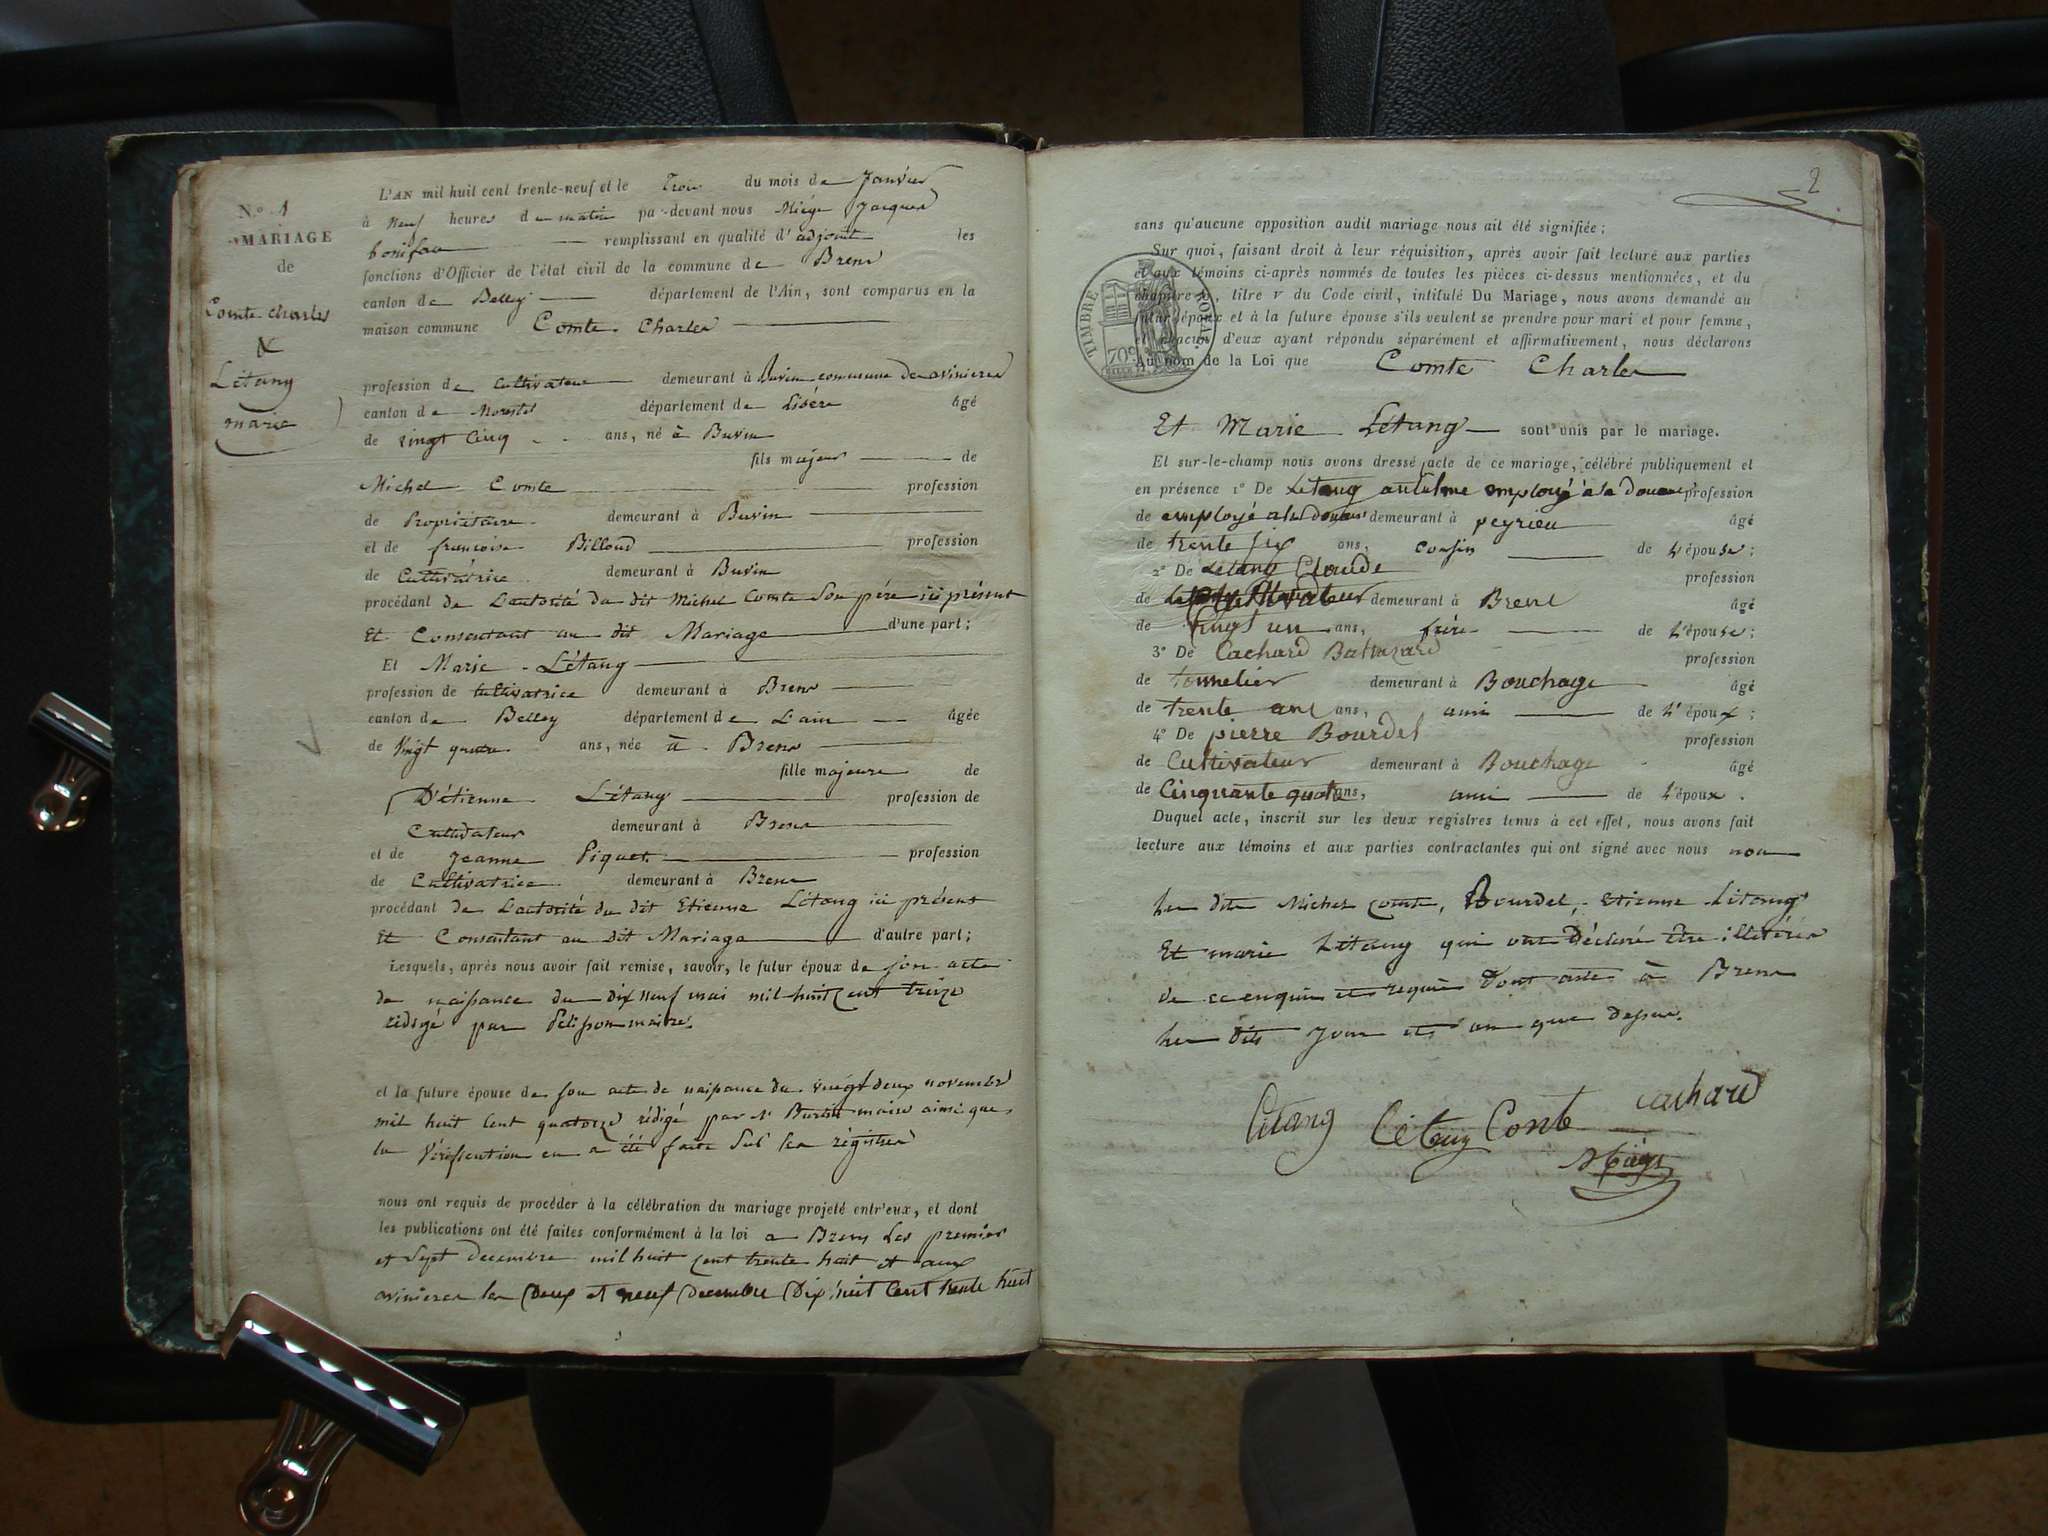 N° 1
MARIAGE
de
Comte charles
&
Létang
marie
L'AN mil huit cent trente-neuf et le Trois du mois de Janvier
à neuf heures du matin par-devant nous Miége Jacques
boniface remplissant en qualité d'adjoint les
fonctions d'Officier de l'état civil de la commune de Brens
canton de Belley département de l'Ain, sont comparus en la
maison commune Comte Charles
profession de Cultivateur demeurant à Buvin commune des avinieres
canton de Morestel département de Lisére âgé
de vingt Cinq ans, né à Buvin
fils majeur de
Michel Comte profession
de Propriétaire demeurant à Buvin
et de francoise Billoud profession
de Cultivatrice demeurant à Buvin
procédant de Lautorité du dit Michel Comte Son père ici présent
Et Consentant au dit Mariage d'une part;
Et Marie Létang
profession de Cultivatrice demeurant à Brens
canton de Belley département de L'ain âgée
de Vingt quatre ans, née à Brens
fille majeure de
D'étienne Létang profession de
Cultivateur demeurant à Brens
et de Jeanne Piquet profession
de Cultivatrice demeurant à Brens
procédant de Lautorité du dit Etienne Létang ici présent
Et Consentant au Dit Mariage d'autre part;
Lesquels, après nous avoir fait remise, savoir, le futur époux de son acte
de naissance du dix neuf mai mil huit Cent treize
rédigé par Pelisson maire
et la future épouse de son acte de naissance du vingt deux novembre
mil huit Cent quatorze rédigé par Mr Burtin maire ainsi que
la Vérification en a été faite Sur les régistres
nous ont requis de procéder à la célébration du mariage projeté entr'eux, et dont
les publications ont été faites conformément à la loi a Brens Les premier
et Sept decembre mil huit Cent trente huit et aux
avinieres les Deux et neuf Decembre Dix huit Cent trente huit
2
sans qu'aucune opposition audit mariage nous ait été signifiée;
Sur quoi, faisant droit à leur réquisition, après avoir fait lecture aux parties
et aux témoins ci-après nommés de toutes les pièces ci-dessus mentionnées, et du
chapitre , titre v du Code civil, intitulé Du Mariage, nous avons demandé au
futur époux et à la future épouse s'ils veulent se prendre pour mari et pour femme,
et chacun d'eux ayant répondu séparément et affirmativement, nous déclarons
Au nom de la Loi que Comte Charles
TIMBRE ROYAL
70c
Et Marie Létang sont unis par le mariage.
Et sur-le-champ nous avons dressé acte de ce mariage, célébré publiquement et
en présence 1° De Letang antelme employé à la douane profession
de employé a la douane demeurant à peyrieu âgé
de trente six ans, cousin de L'épouse;
2° De Letang Claude profession
de Cultivateur demeurant à Brens âgé
de Vingt un ans, frère de L'épouse;
3° De Cachard Balthazard profession
de tonnelier demeurant à Bouchage âgé
de trente ans ans, ami de L'époux;
4° De pierre Bourdel profession
de Cultivateur demeurant à Bouchage âgé
de Cinquante quatre ans, ami de L'époux.
Duquel acte, inscrit sur les deux registres tenus à cet effet, nous avons fait
lecture aux témoins et aux parties contractantes qui ont signé avec nous non
Les dits Michel Comte, Bourdel, Etienne Létang
Et marie Létang qui ont Déclaré être illétérés
de ce enquis et requis Dont acte à Brens
Les Dits Jour et an que dessus.
Litang Létang Conte cachard
Miége